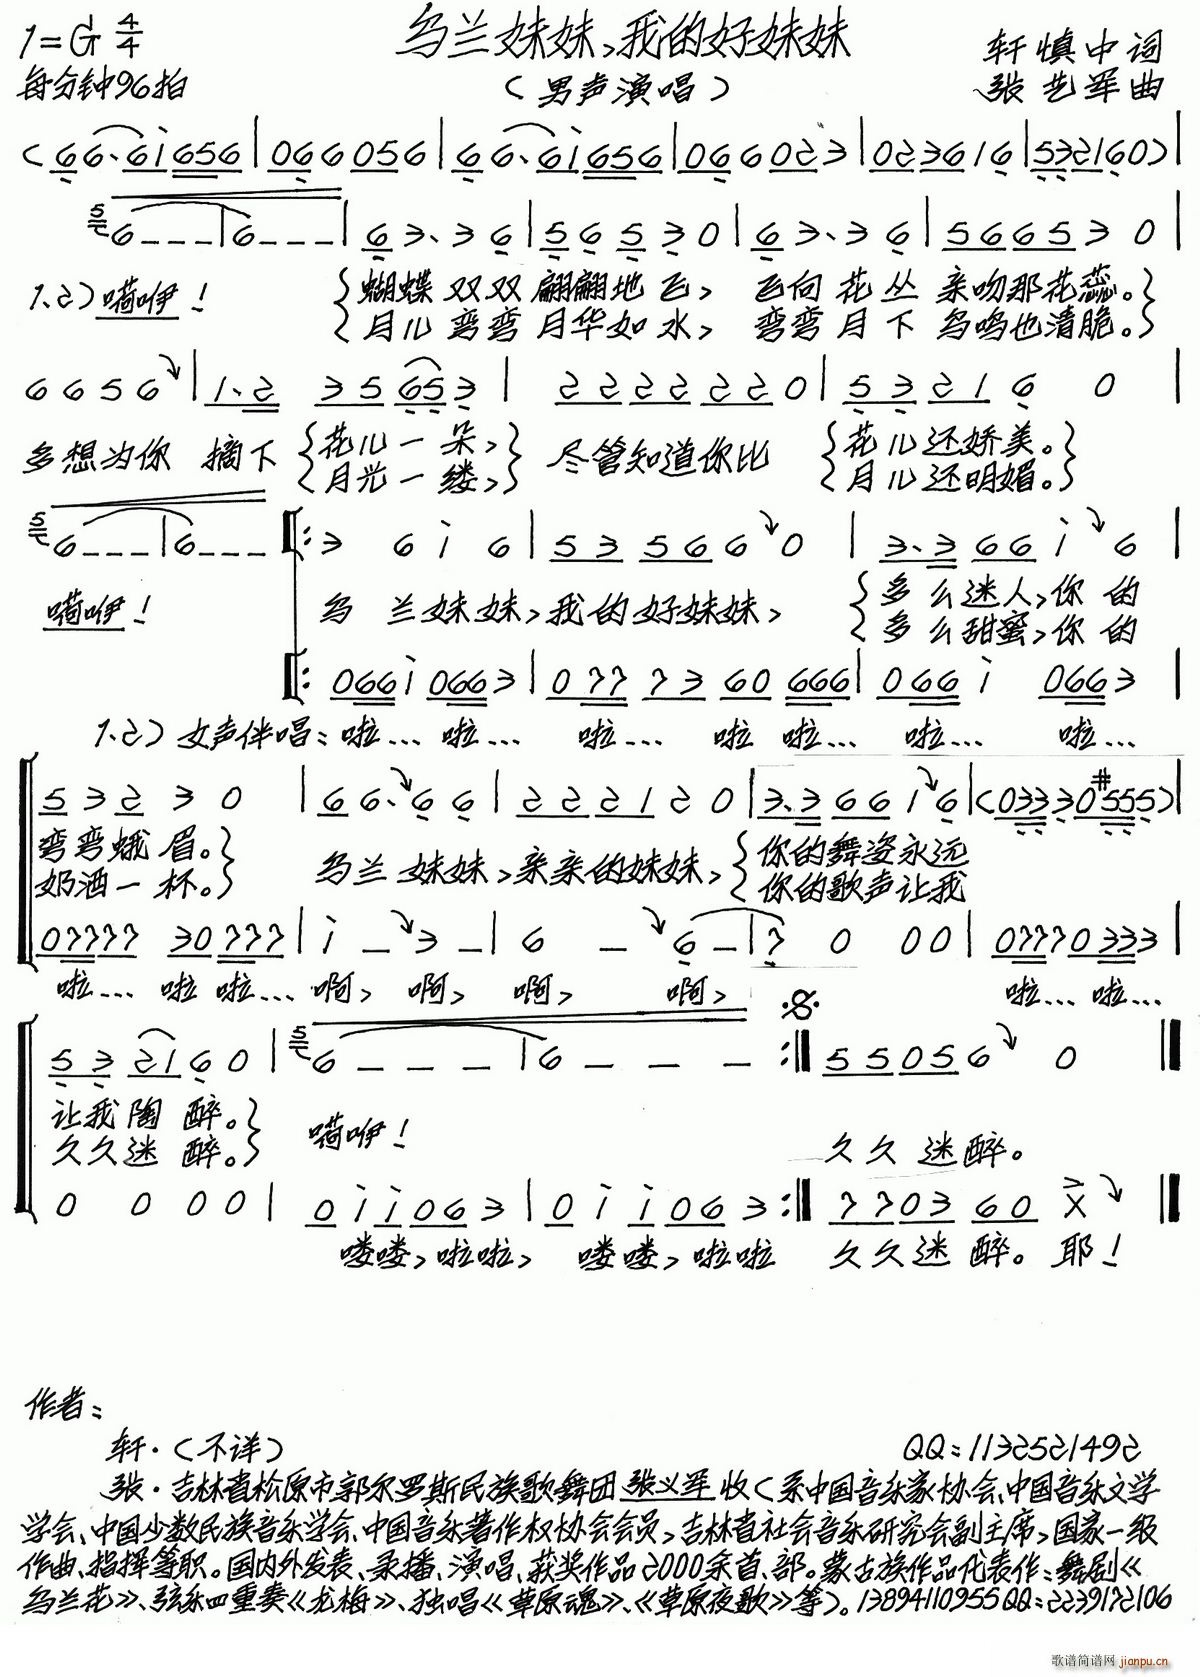 1=G 4/4
乌兰妹妹，我的好妹妹
轩慎中词
每分钟96拍
（男声演唱）
张艺军曲
（6 6. 6i 656 | 066 056 | 6 6. 6i 656 | 066 023 | 023616 | 532160）|
5 6 - - - | 6 - - - | 6 3. 3 6 | 5 6 5 3 0 | 6 3. 3 6 | 5665 3 0 |
1.2）嗬咿！ 蝴蝶双双翩翩地飞， 飞向花丛亲吻那花蕊。
月儿弯弯月华如水， 弯弯月下鸟鸣也清脆。
6 6 5 6 | 1.2 35 65 3 | 22 22 22 0 | 53 21 6 0 |
多想为你 摘下 花儿一朵， 尽管知道你比 花儿还娇美。
月光一缕， 月儿还明媚。
5 6 - - - | 6 - - - ‖: 3 6 i 6 | 53 56 6 0 | 3.3 66 i 6 |
嗬咿！ 乌兰妹妹，我的好妹妹， 多么迷人，你的
多么甜蜜，你的
‖: 066 i 066 3 | 077 73 60 666 | 066 i 066 3 |
1.2）女声伴唱：啦… 啦… 啦… 啦 啦… 啦… 啦…
53 2 3 0 | 66. 66 | 22 21 2 0 | 3.3 66 i 6 |（0333 0#555）|
弯弯蛾眉。 乌兰妹妹，亲亲的妹妹， 你的舞姿永远
奶酒一杯。 你的歌声让我
07777 30 777 | i - 3 - | 6 - 6 - | 7 0 0 0 | 0777 0333 |
啦… 啦 啦… 啊， 啊， 啊， 啊， 啦… 啦…
53 21 6 0 | 5 6 - - - | 6 - - - :‖ 55 05 6 0 ‖
让我陶醉。 嗬咿！
久久迷醉。 久久迷醉。
0 0 0 0 | 0i i0 6 3 | 0 i i0 6 3 :‖ 77 03 60 X ‖
喽喽，啦啦， 喽喽，啦啦 久久迷醉。耶！
作者：
轩·（不详） QQ：1132521492
张·吉林省松原市郭尔罗斯民族歌舞团张义军收（系中国音乐家协会、中国音乐文学
学会、中国少数民族音乐学会、中国音乐著作权协会会员，吉林省社会音乐研究会副主席，国家一级
作曲、指挥等职。国内外发表、录播、演唱、获奖作品2000余首、部。蒙古族作品代表作：舞剧《
乌兰花》、弦乐四重奏《龙梅》、独唱《草原魂》、《草原夜歌》等）。13894110955 QQ：2239172106
歌谱简谱网
jianpu.cn